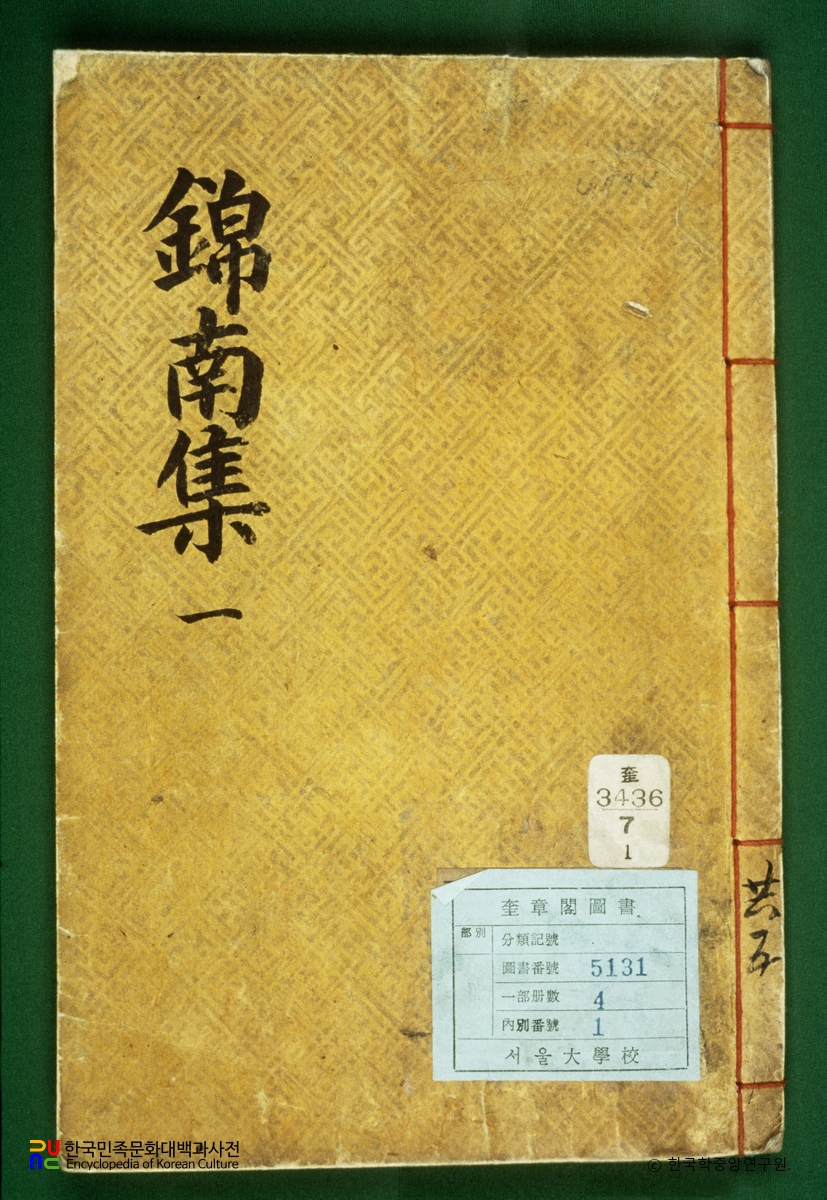 錦南集 一
奎
3436
7
1
奎章閣圖書
部別
分類記號
圖書番號 5131
一部册數 4
內別番號 1
서울大學校
共五
한국민족문화대백과사전
Encyclopedia of Korean Culture
© 한국학중앙연구원.